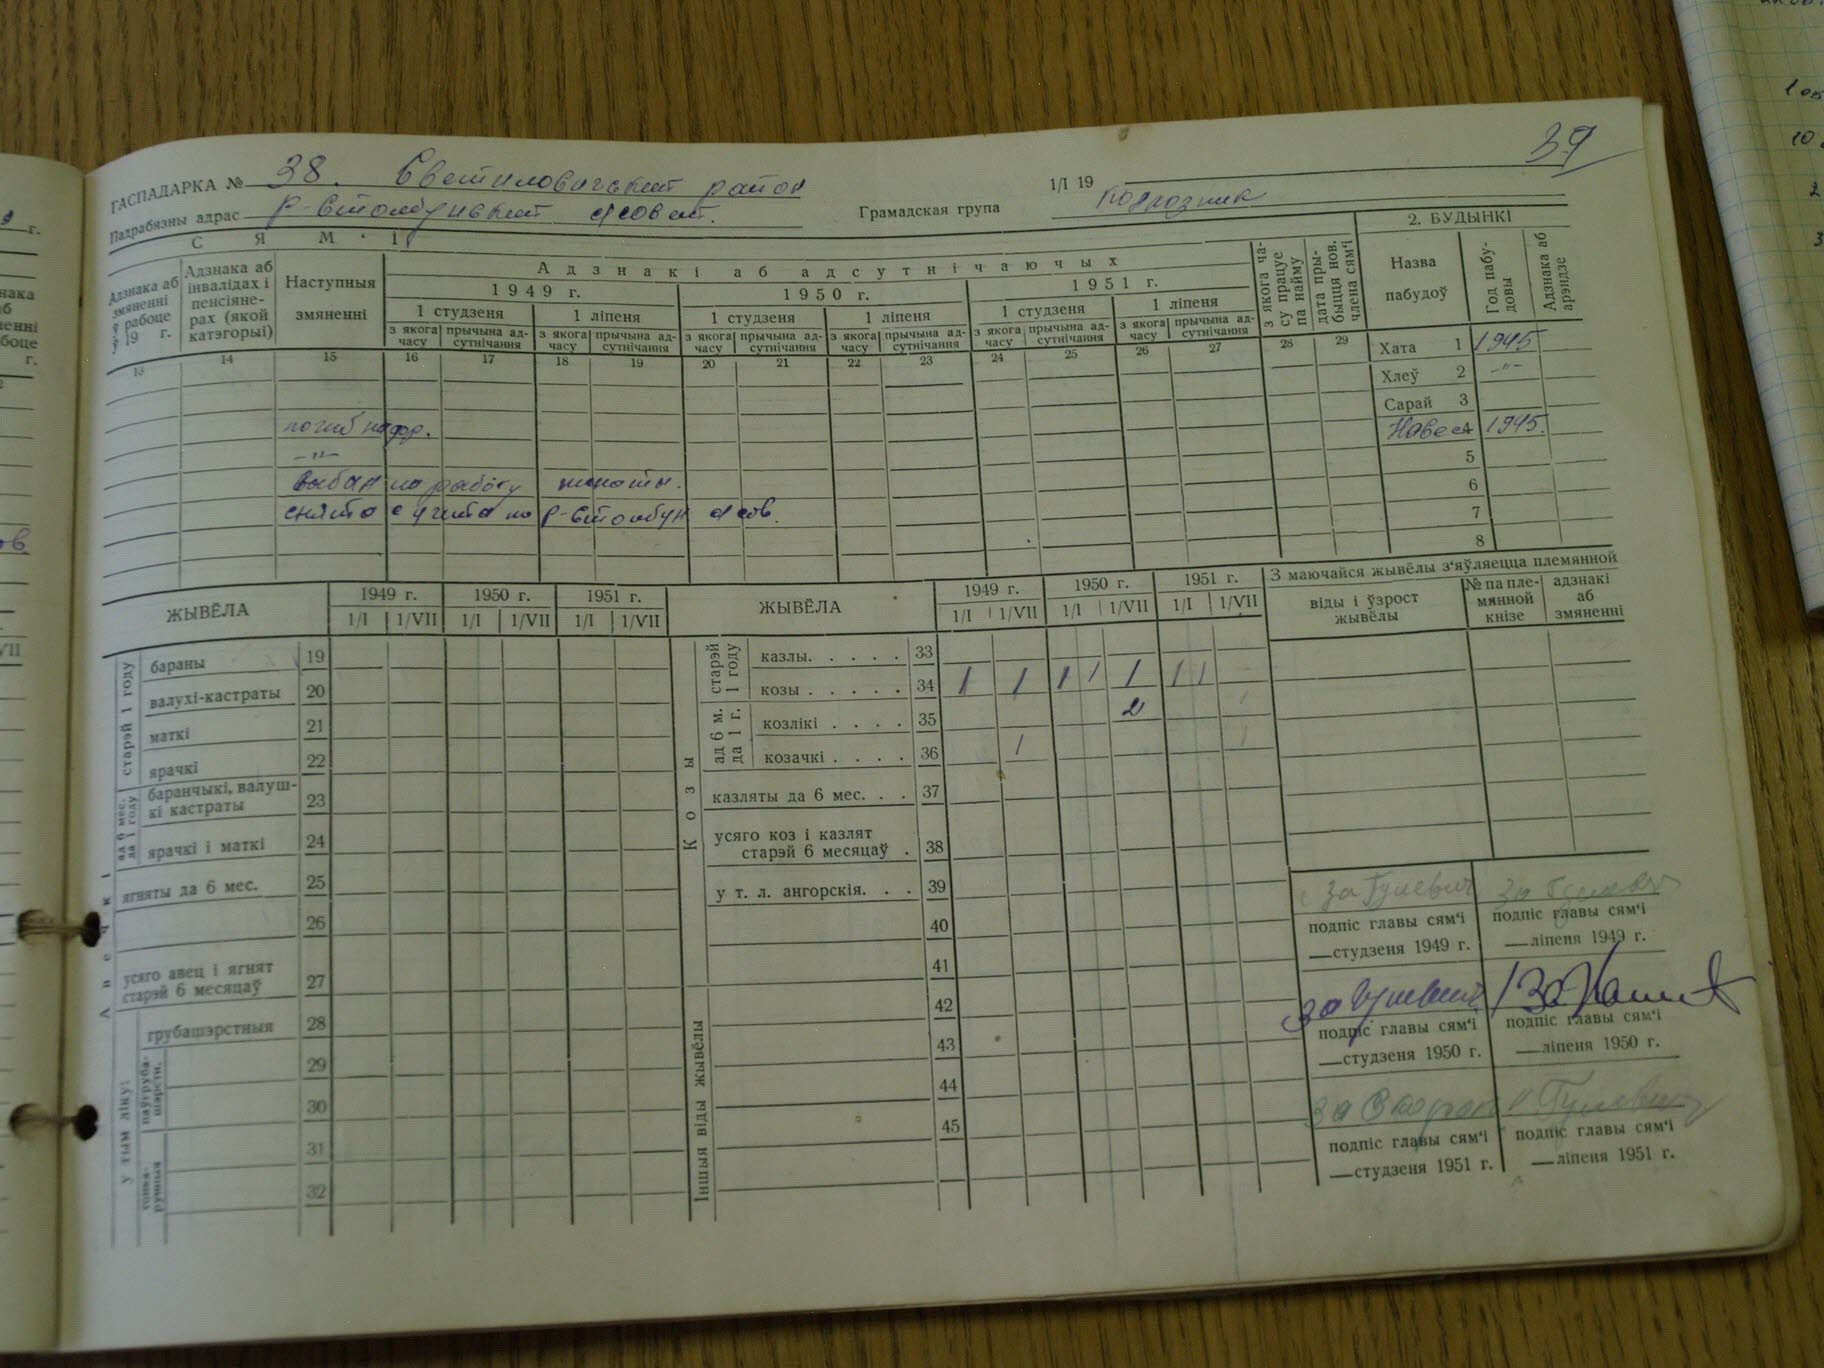 39
ГАСПАДАРКА № 38. Светиловичский район 1/I 19
Падрабязны адрас с/совет. Грамадская група колхозник
СЯМ'І
2. БУДЫНКІ
Адзнака аб змяненні ў рабоце 19 г.
Адзнака аб інвалідах і пенсіянерах (якой катэгорыі)
Наступныя змяненні
Адзнакі аб адсутнічаючых
1949 г. 1950 г. 1951 г.
1 студзеня 1 ліпеня 1 студзеня 1 ліпеня 1 студзеня 1 ліпеня
з якога часу прычына адсутнічання з якога часу прычына адсутнічання з якога часу прычына адсутнічання з якога часу прычына адсутнічання з якога часу прычына адсутнічання з якога часу прычына адсутнічання
з якога часу працуе па найму
дата прыбыцця нов. члена сям'і
Назва пабудоў
Год пабудовы
Адзнака аб арэндзе
13 14 15 16 17 18 19 20 21 22 23 24 25 26 27 28 29
Хата 1 1945
Хлеў 2 -"-
Сарай 3
Навес 4 1945.
5
6
7
8
погиб на фр.
-"-
выбыл на работу
снята с учета по с/сов.
ЖЫВЁЛА 1949 г. 1950 г. 1951 г.
1/I 1/VII 1/I 1/VII 1/I 1/VII
Авечкі
старэй 1 году
бараны 19
валухі-кастраты 20
маткі 21
ярачкі 22
ад 6 мес. да 1 году
баранчыкі, валушкі кастраты 23
ярачкі і маткі 24
ягняты да 6 мес. 25
26
усяго авец і ягнят старэй 6 месяцаў 27
у тым ліку:
грубашэрстныя 28
паўгрубашэрстн.
29
30
тонкарунныя
31
32
ЖЫВЁЛА 1949 г. 1950 г. 1951 г.
1/I 1/VII 1/I 1/VII 1/I 1/VII
Козы
старэй 1 году
казлы. . . . . 33
козы . . . . . 34 1 1 1 1 1 1 1
ад 6 м. да 1 г.
козлікі . . . . 35 2
козачкі . . . . 36 1 1
казляты да 6 мес. . . 37
усяго коз і казлят
старэй 6 месяцаў . 38
у т. л. ангорскія. . . 39
40
41
Іншыя віды жывёлы
42
43
44
45
З маючайся жывёлы з'яўляецца племянной
віды і ўзрост жывёлы
№ па племянной кнізе
адзнакі аб змяненні
За Гулевич
подпіс главы сям'і подпіс главы сям'і
—студзеня 1949 г. —ліпеня 1949 г.
За Гулевич
подпіс главы сям'і подпіс главы сям'і
—студзеня 1950 г. —ліпеня 1950 г.
Гулевич
подпіс главы сям'і подпіс главы сям'і
—студзеня 1951 г. —ліпеня 1951 г.